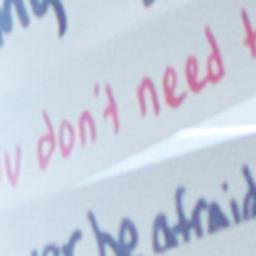 ou don't need t
ver be afraid